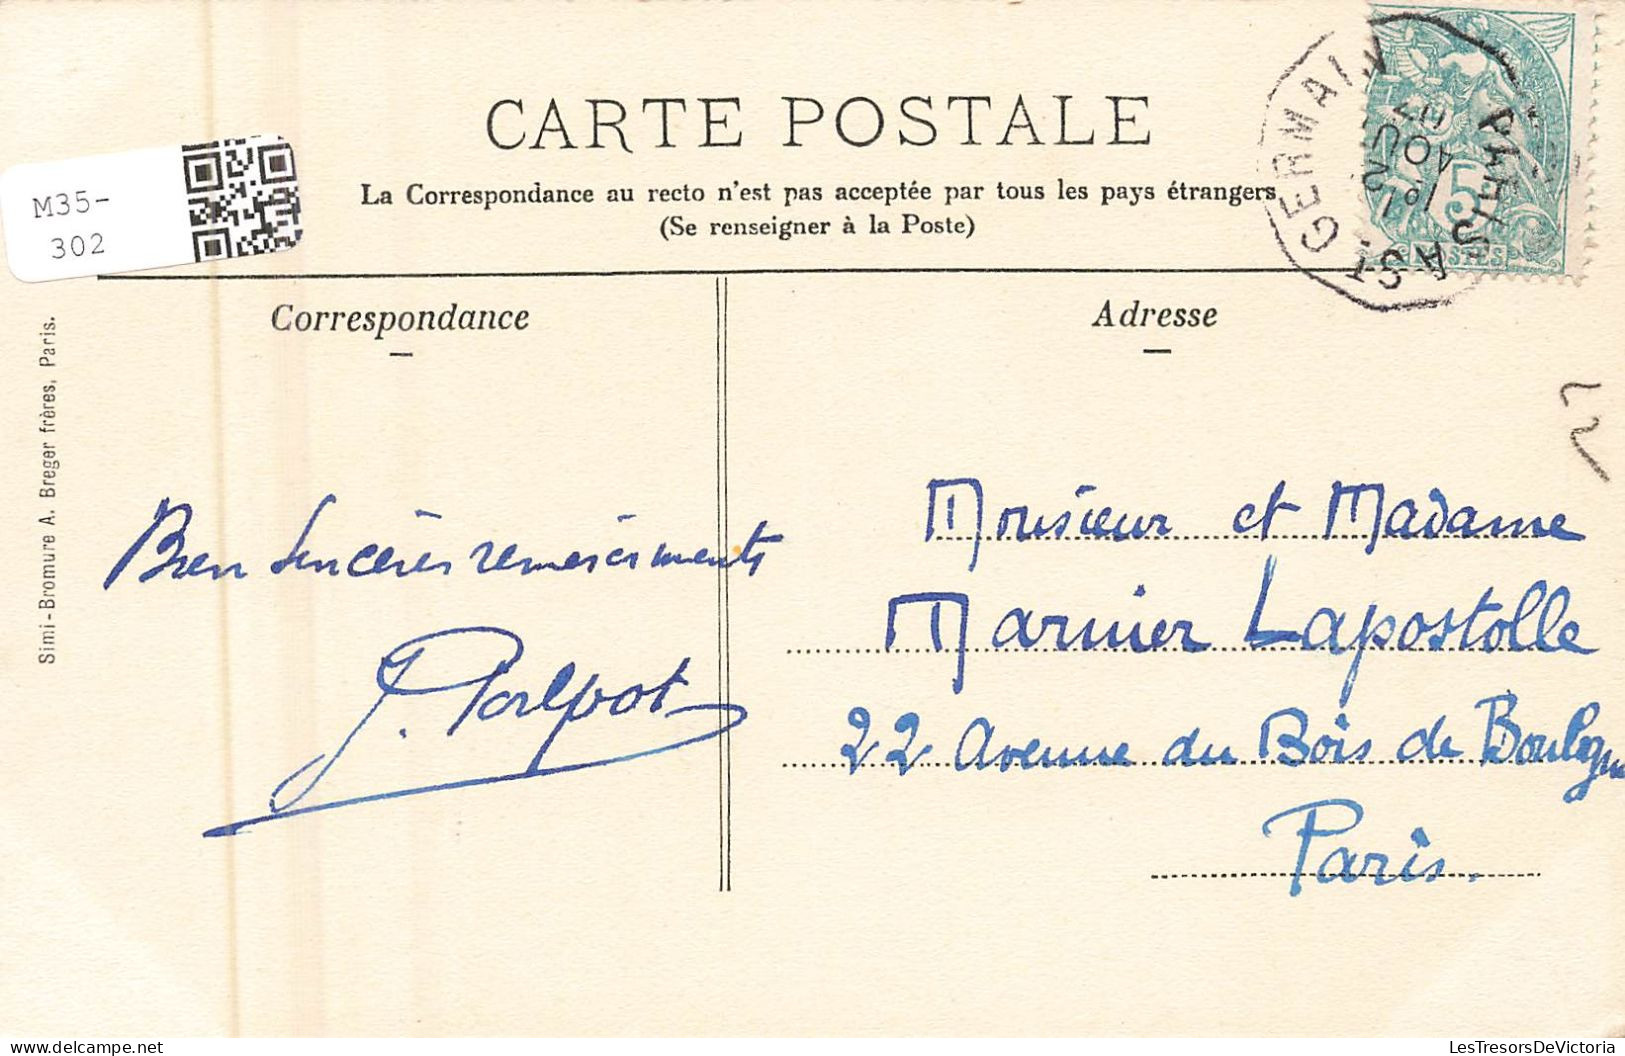 CARTE POSTALE
La Correspondance au recto n'est pas acceptée par tous les pays étrangers
(Se renseigner à la Poste)
M35-
302
ST GERMAIN
A
PARIS
AOU
07
5
POSTES
Correspondance
Adresse
Simi-Bromure A. Breger frères, Paris.
Bien sincères remerciements
Monsieur et Madame
Marnier Lapostolle
22 Avenue du Bois de Boulogne
Paris.
LesTresorsDeVictoria